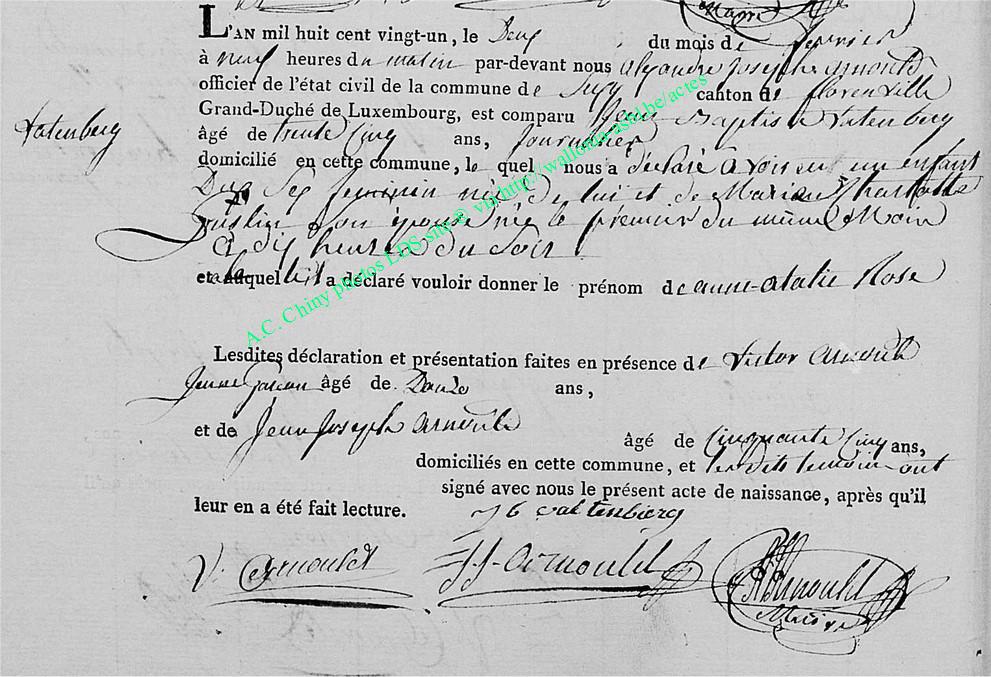 Maire
L'AN mil huit cent vingt-un, le Deux du mois de fevrier
à neuf heures du matin par-devant nous alexandre Joseph arnould
officier de l'état civil de la commune de Suxy canton de florenville
Grand-Duché de Luxembourg, est comparu Jean Baptiste Vatenberg
Vatenberg
âgé de trente Cinq ans, Journalier
domicilié en cette commune, le quel nous a déclaré avoir eut un enfant
Du Sex feminin née de lui et de Marian
Son épouse née le premier du même Mois
à dix heures du Soir
et laquel il a déclaré vouloir donner le prénom de anne-atalie Rose
Lesdites déclaration et présentation faites en présence de Victor arnould
Jeune Garcon âgé de ans,
et de Jean Joseph arnould âgé de Cinquante Cinq ans,
domiciliés en cette commune, et lesdits temoin ont
signé avec nous le présent acte de naissance, après qu'il
leur en a été fait lecture. J b valtenberg
V. Arnould J-J-Arnould AJ Arnould
Maire
A.C. Chiny photos LDS site © vm http://wallonia-asbl.be/actes